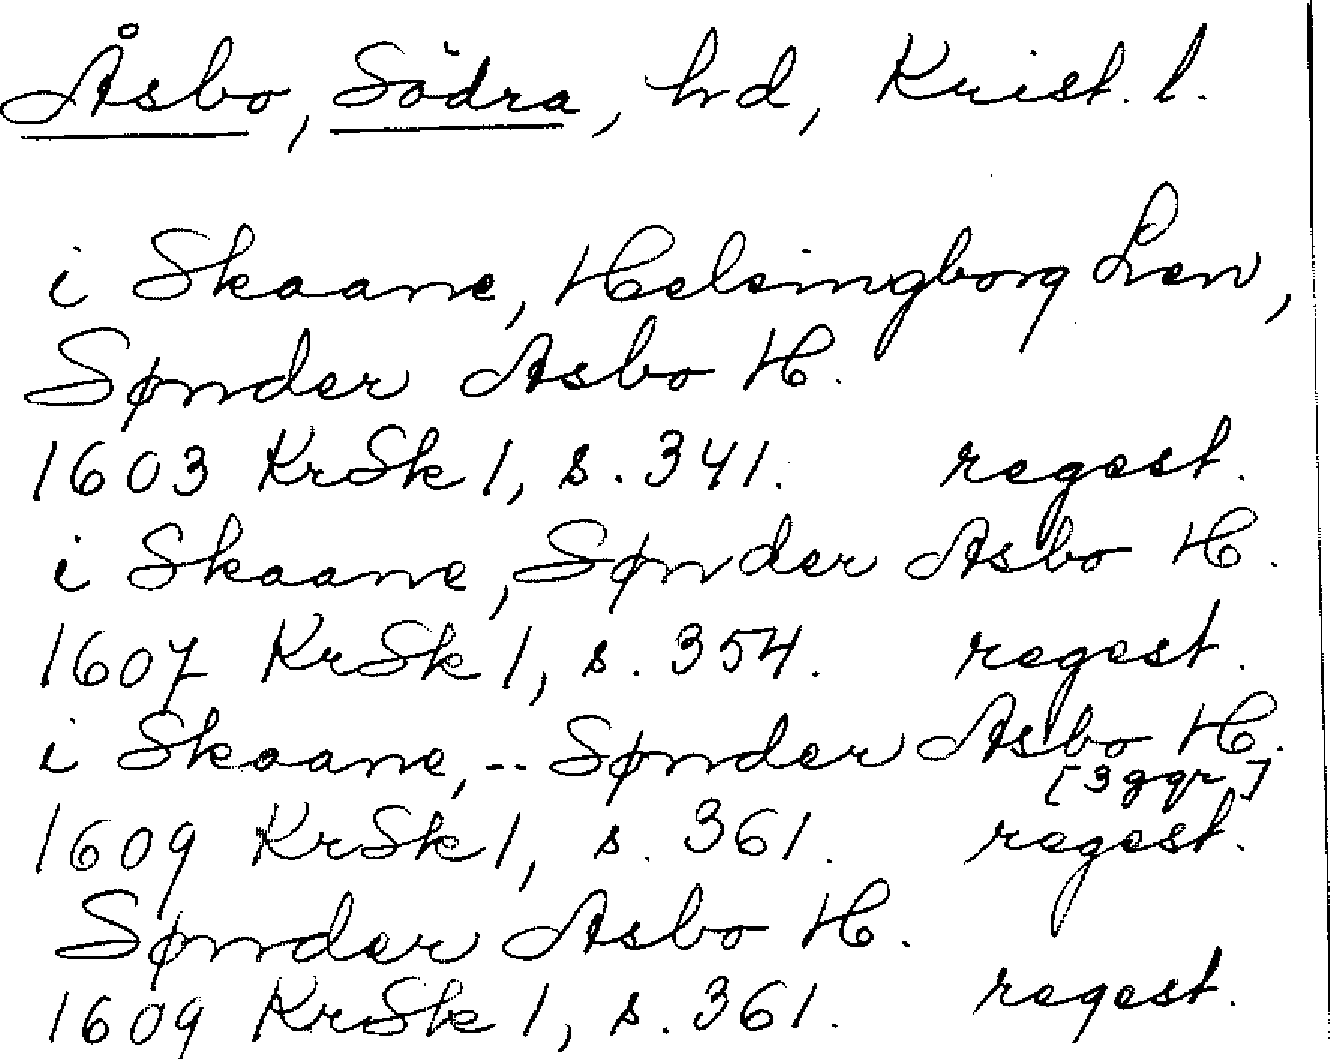 Åsbo, Södra, hd, Krist. l.
i Skaane, Helsingborg Len,
Sønder Asbo H.
1603 KrSk 1, s. 341. regest.
i Skaane, Sønder Asbo H.
1607 KrSk 1, s. 354. regest.
i Skaane, -- Sønder Asbo H.
[3 ggr]
1609 KrSk 1, s. 361. regest.
Sønder Asbo H.
1609 KrSk 1, s. 361. regest.